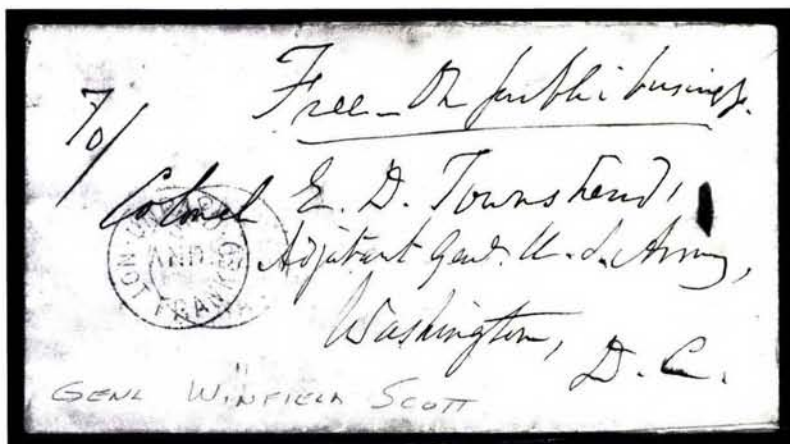 Free - On public business.
To/
Colonel E. D. Townsend,
Adjutant Genl. U. S. Army,
Washington,
D. C.
UNPAID
AND
NOT FRANKED
GENL WINFIELD SCOTT